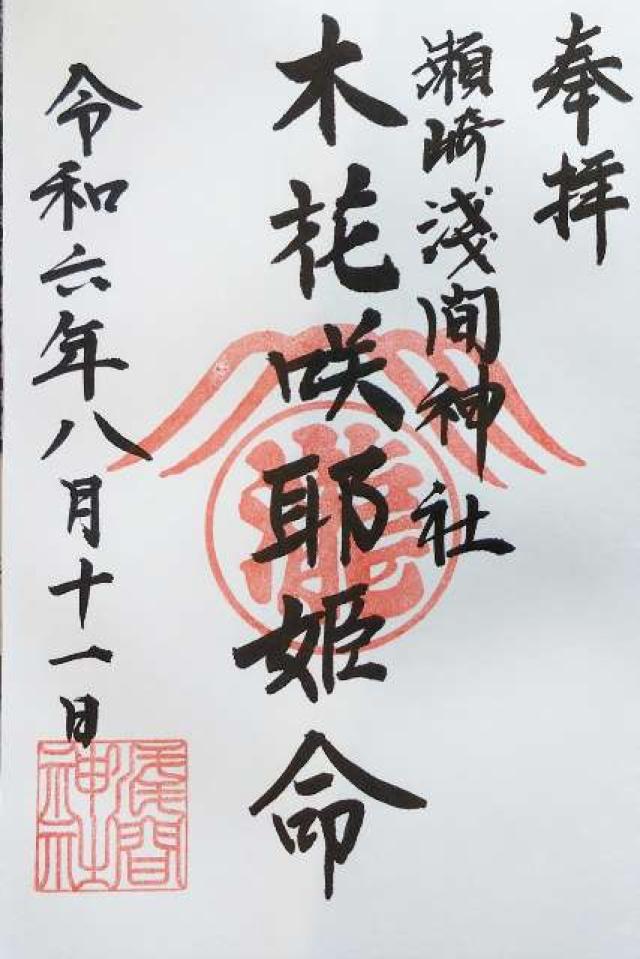 奉拝
瀬崎淺間神社
木花咲耶姫命
令和六年八月十一日
瀧
淺間
神社